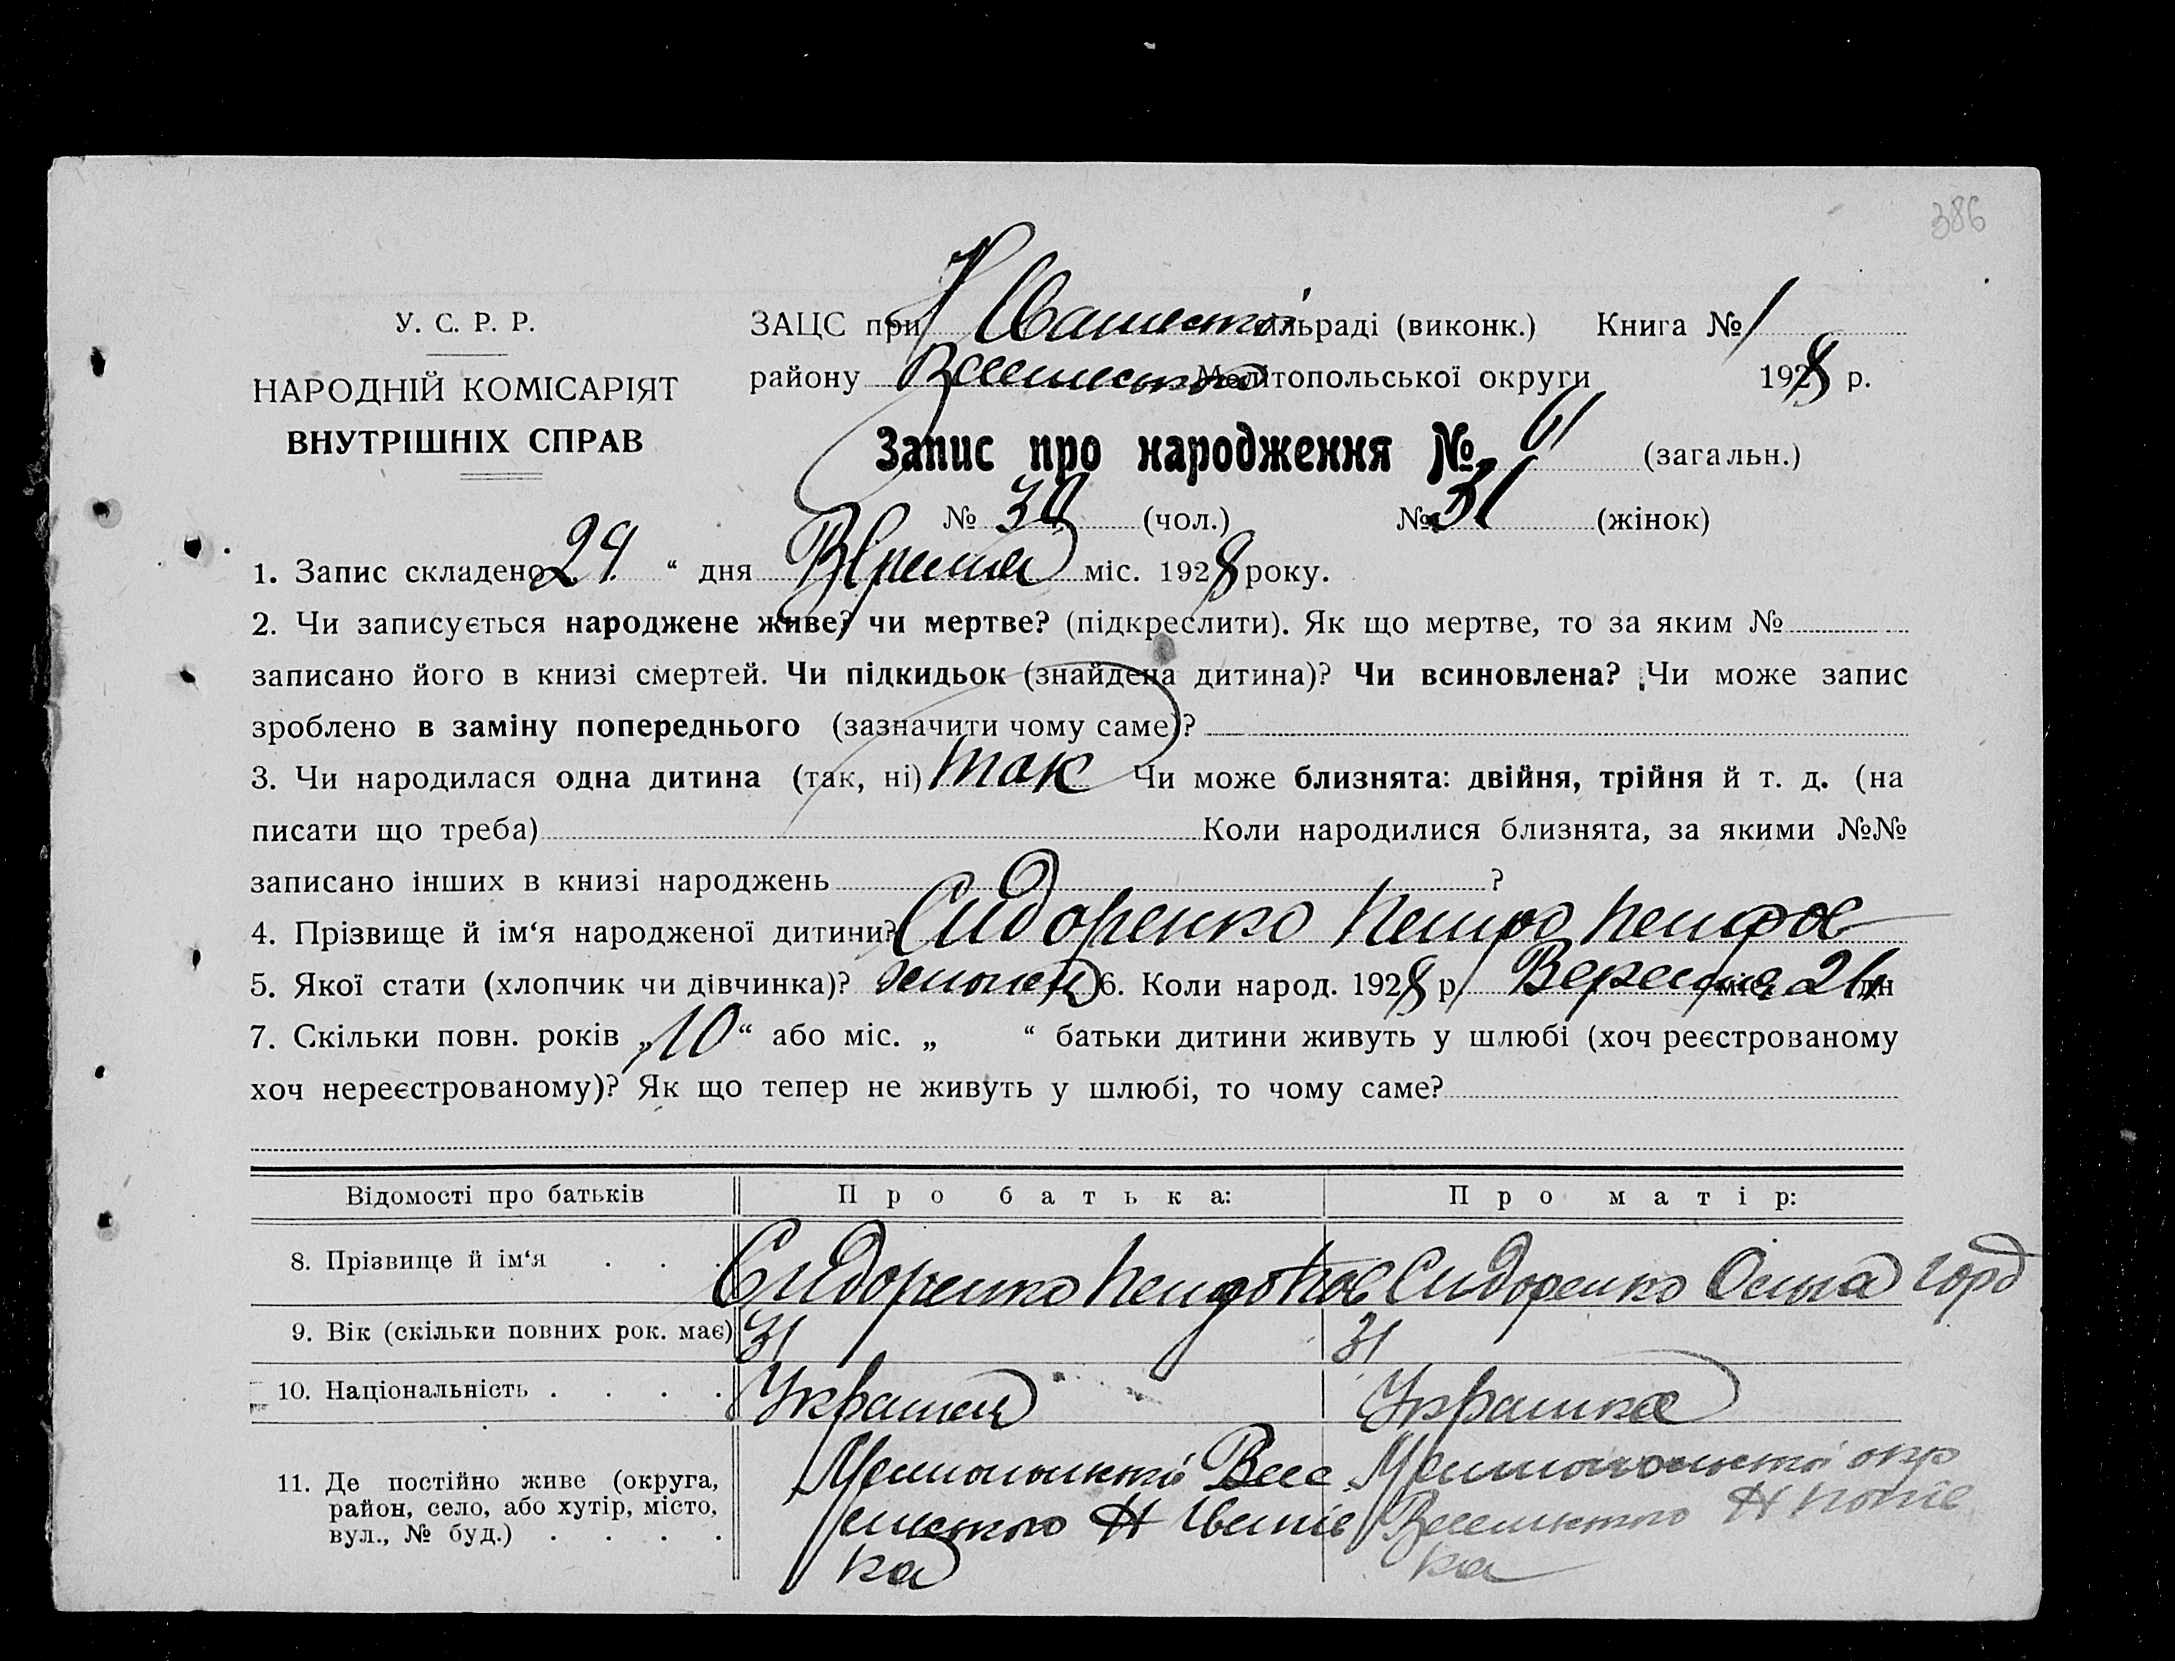 386
У. С. Р. Р.
НАРОДНІЙ КОМІСАРІЯТ
ВНУТРІШНІХ СПРАВ
ЗАЦС при Н сільраді (виконк.) Книга № 1
району Мелітопольської округи 1928 р.
Запис про народження № 61 (загальн.)
№ 30 (чол.) № 31 (жінок)
1. Запис складено 29 “ дня міс. 1928 року.
2. Чи записується народжене живе? чи мертве? (підкреслити). Як що мертве, то за яким №
записано його в книзі смертей. Чи підкидьок (знайдена дитина)? Чи всиновлена? Чи може запис
зроблено в заміну попереднього (зазначити чому саме)?
3. Чи народилася одна дитина (так, ні) так Чи може близнята: двійня, трійня й т. д. (на
писати що треба) Коли народилися близнята, за якими №№
записано інших в книзі народжень ?
4. Прізвище й ім‘я народженої дитини? Сидоренко
5. Якої стати (хлопчик чи дівчинка)? 6. Коли народ. 1928 р. Вересня міс. дн
7. Скільки повн. років „10“ або міс. „ “ батьки дитини живуть у шлюбі (хоч реєстрованому
хоч нереєстрованому)? Як що тепер не живуть у шлюбі, то чому саме?
Відомості про батьків Про батька: Про матір:
8. Прізвище й ім‘я . . . Сидоренко Сидоренко Горд
9. Вік (скільки повних рок. має) 31 31
10. Національність . . . . Украінка
11. Де постійно живе (округа,
район, село, або хутір, місто,
вул., № буд.) . . . .
ка ка